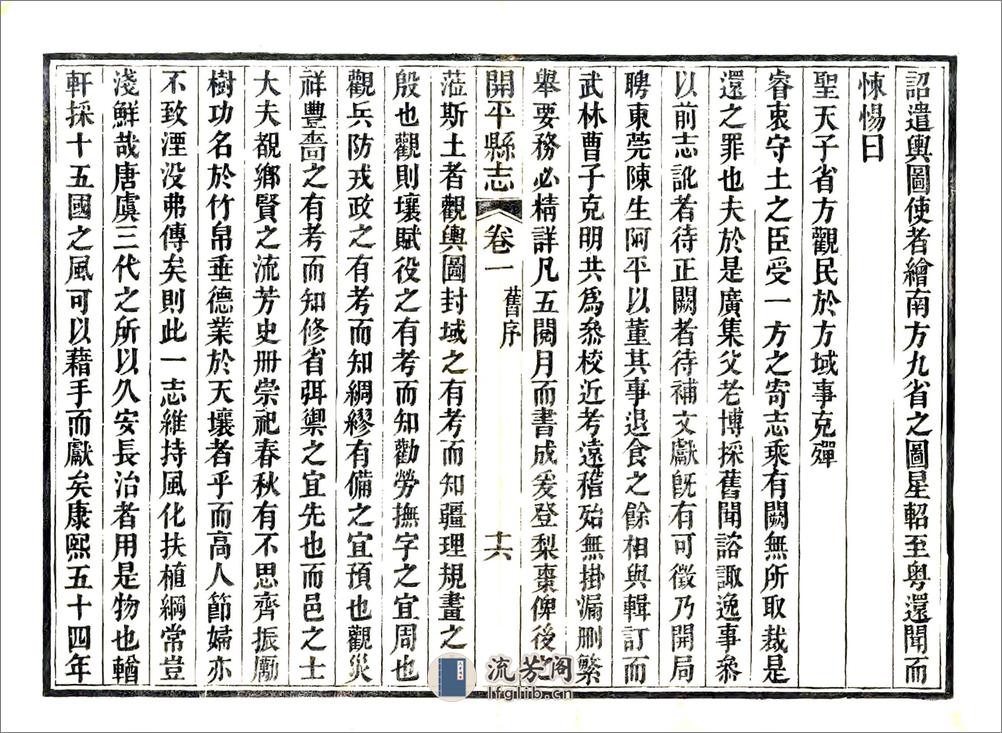 詔遣輿圖使者繪南方九省之圖星軺至粤還聞而
悚惕曰
聖天子省方觀民於方域事克殫
睿衷守土之臣受一方之寄志乘有闕無所取裁是
還之罪也夫於是廣集父老博採舊聞諮諏逸事叅
以前志訛者待正闕者待補文獻旣有可徵乃開局
聘東莞陳生阿平以董其事退食之餘相與輯訂而
武林曹子克明共爲叅校近考遠稽殆無掛漏删繁
舉要務必精詳凡五閱月而書成爰登梨棗俾後之
開平縣志 卷一 舊序 十六
蒞斯土者觀輿圖封域之有考而知疆理規畫之
殷也觀則壤賦役之有考而知勸勞撫字之宜周也
觀兵防戎政之有考而知綢繆有備之宜預也觀災
祥豐嗇之有考而知修省弭禦之宜先也而邑之士
大夫覩鄉賢之流芳史冊崇祀春秋有不思齊振勵
樹功名於竹帛垂德業於天壤者乎而高人節婦亦
不致湮没弗傳矣則此一志維持風化扶植綱常豈
淺鮮哉唐虞三代之所以久安長治者用是物也輶
軒採十五國之風可以藉手而獻矣康熙五十四年
流芳阁
lfglib.cn